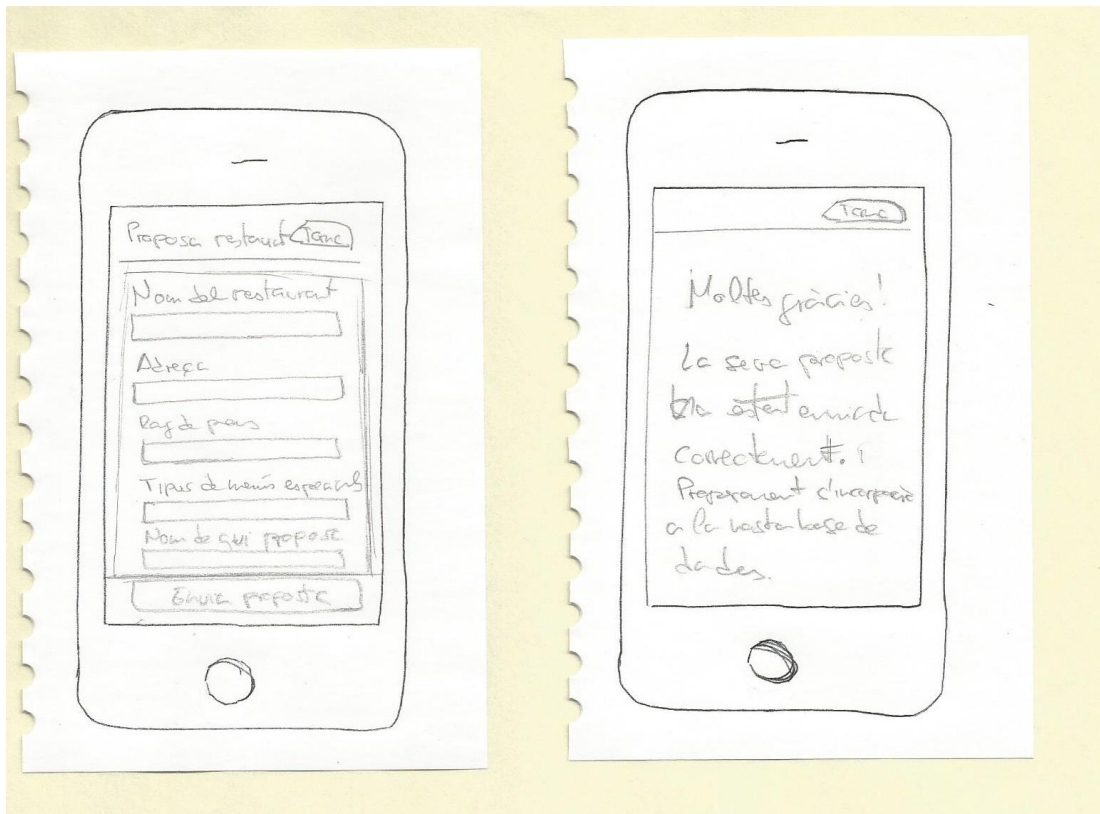 Proposa restaurant
Tanca
Nom del restaurant
Adreça
Rang de preus
Tipus de menús especials
Nom de qui proposa
Envia proposta
Tanca
Moltes gràcies!
La seva proposta
ha estat enviada
correctament.
Properament s'incorporarà
a la nostra base de
dades.